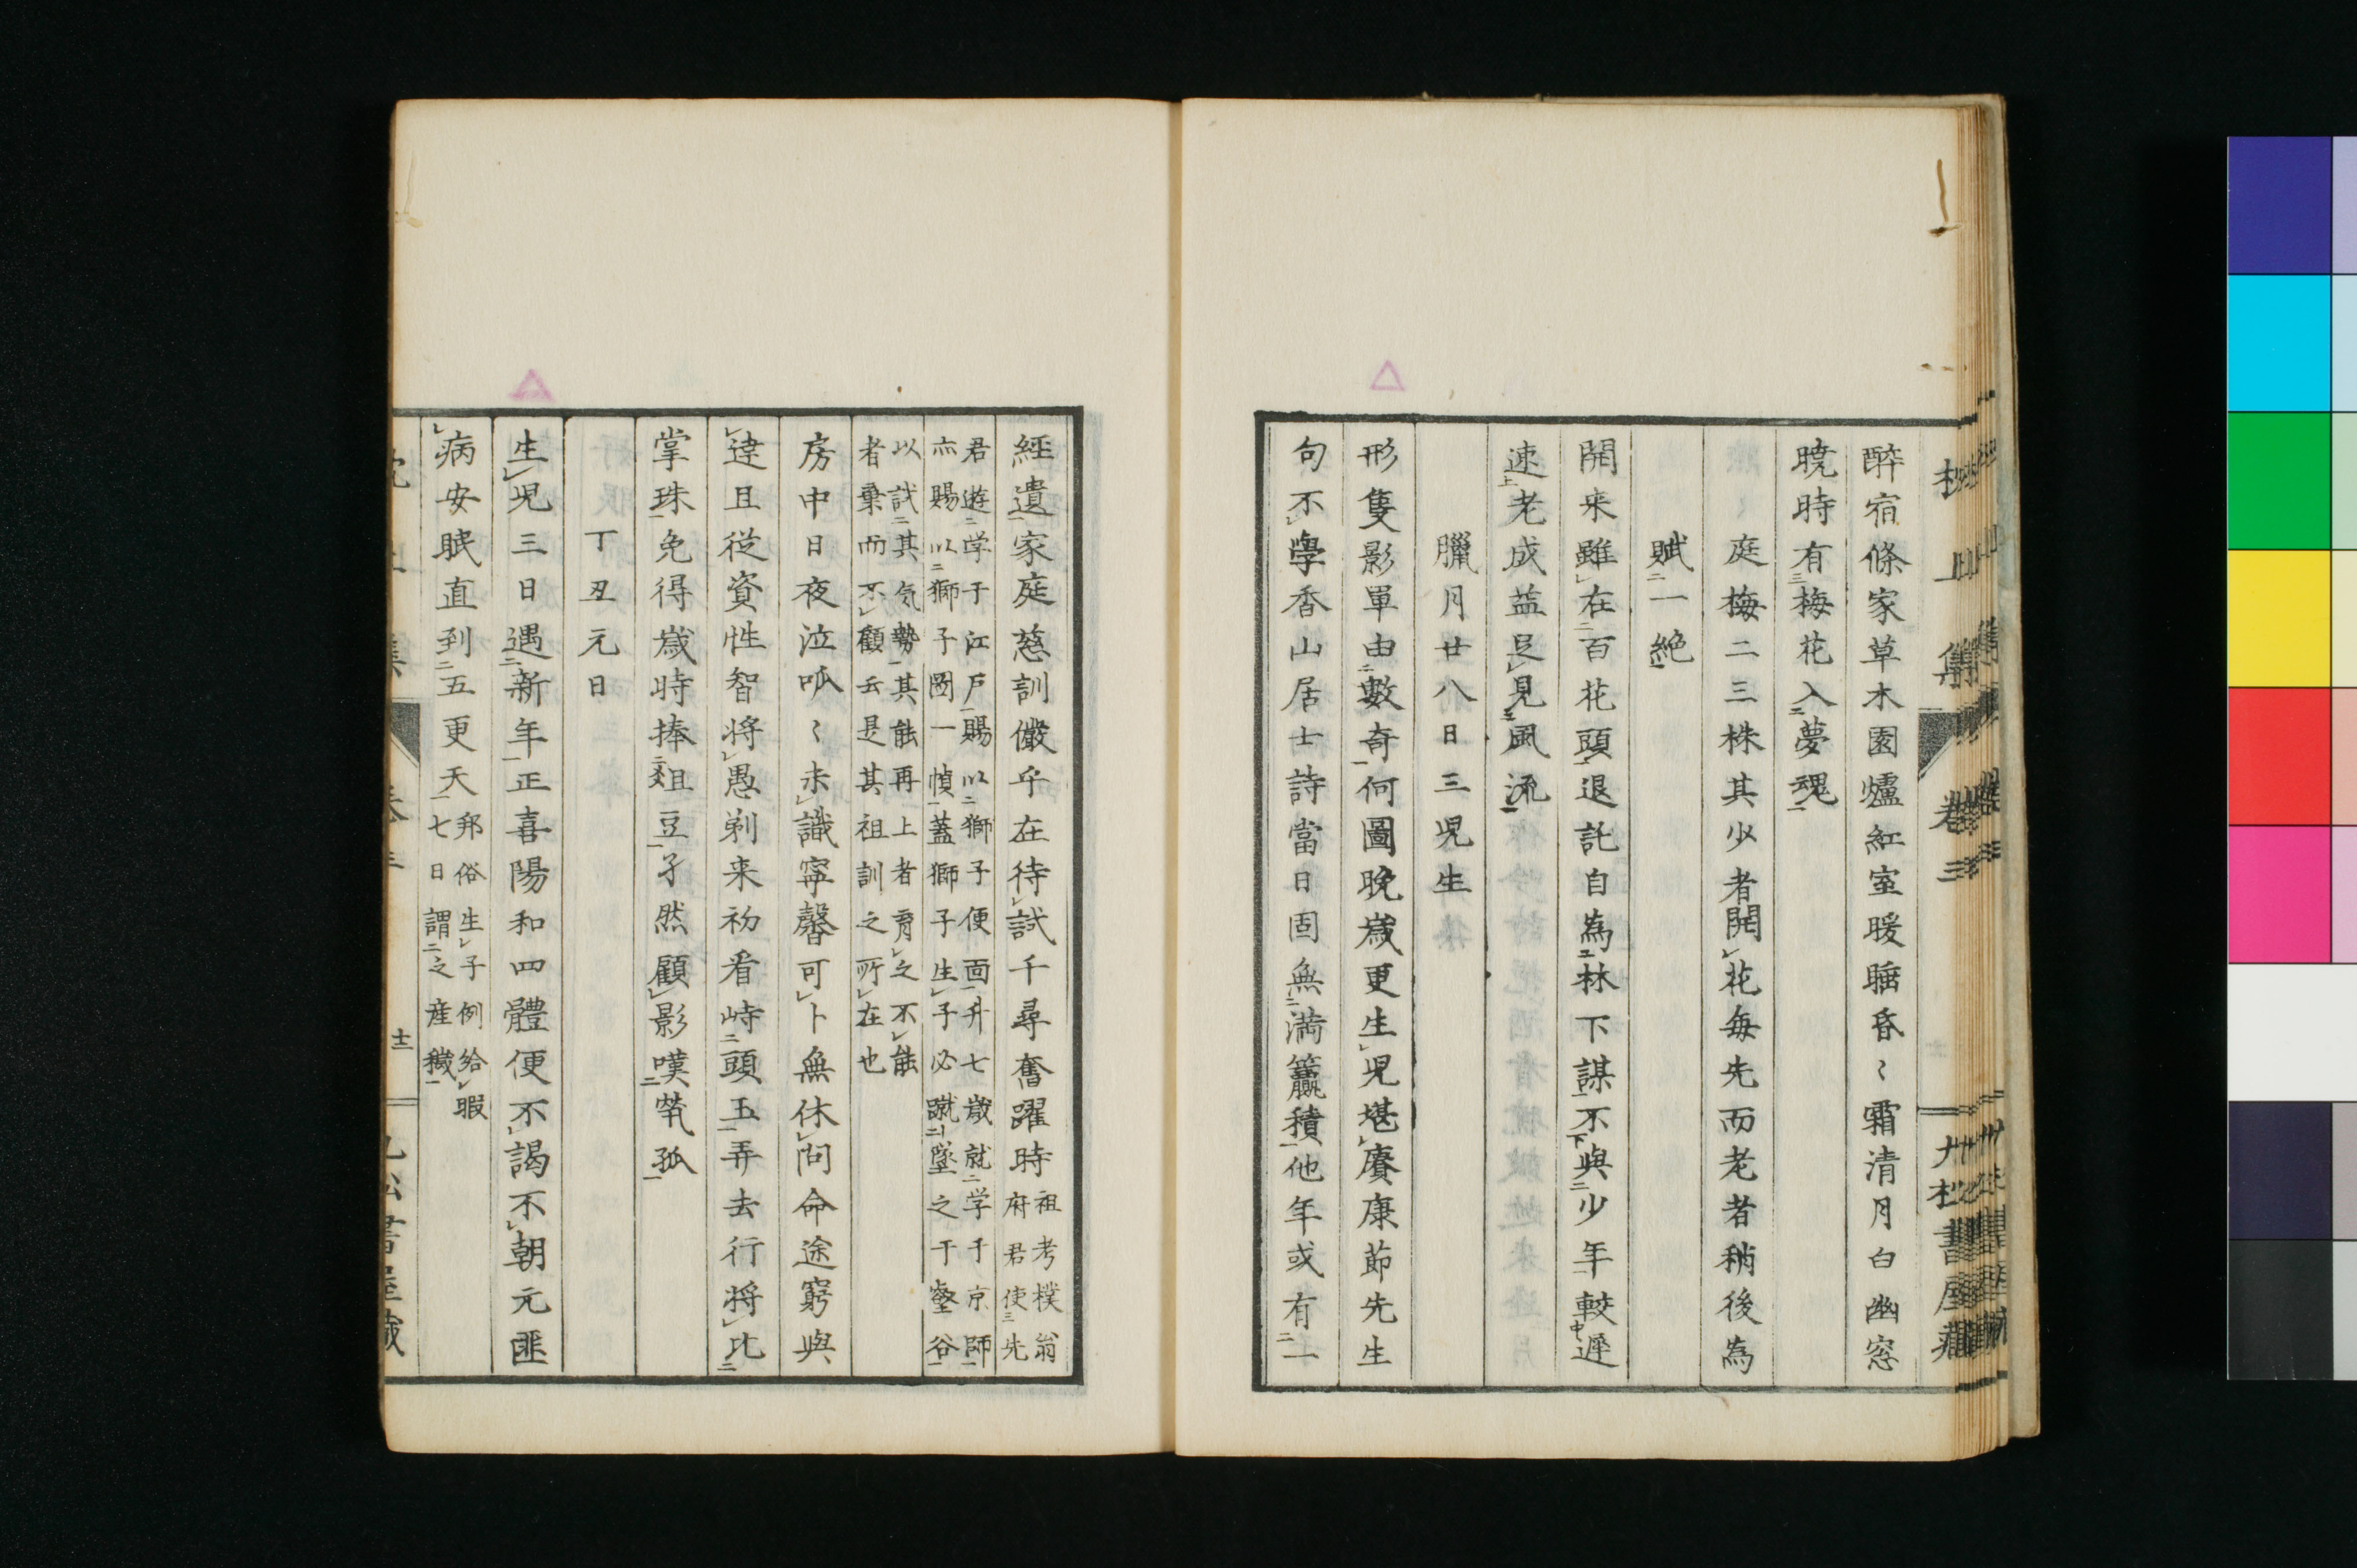 醉宿條家草木園爐紅室暖睡昏〻霜清月白幽窓
曉時有梅花入夢魂
庭梅二三株其少者開花每先而老者稍後為
賦一絶
開来雖在百花頭退託自為林下謀不與少年較遲
速老成益足見風流
臘月廿八日三児生
形隻影單由數奇何圖晩歳更生児堪賡康節先生
句不學香山居士詩當日固無満籯積他年或有一
經遺家庭慈訓儼乎在待試千尋奮躍時
祖考樸翁
府君使先
君遊学于江戸賜以獅子便面升七歳就学于京師
亦賜以獅子圖一幀蓋獅子生子必蹴墜之于壑谷
以試其気勢其能再上者育之不能
者棄而不顧云是其祖訓之所在也
房中日夜泣呱〻未識寧馨可卜無休問命途窮與
達且従資性智将愚剃来初看峙頭玉弄去行将比
掌珠免得歳時捧俎豆孑然顧影嘆煢孤
丁丑元日
生児三日遇新年正喜陽和四體便不謁不朝元匪
病安眠直到五更天
邦俗生子例給暇
七日謂之産穢
卷三
十二